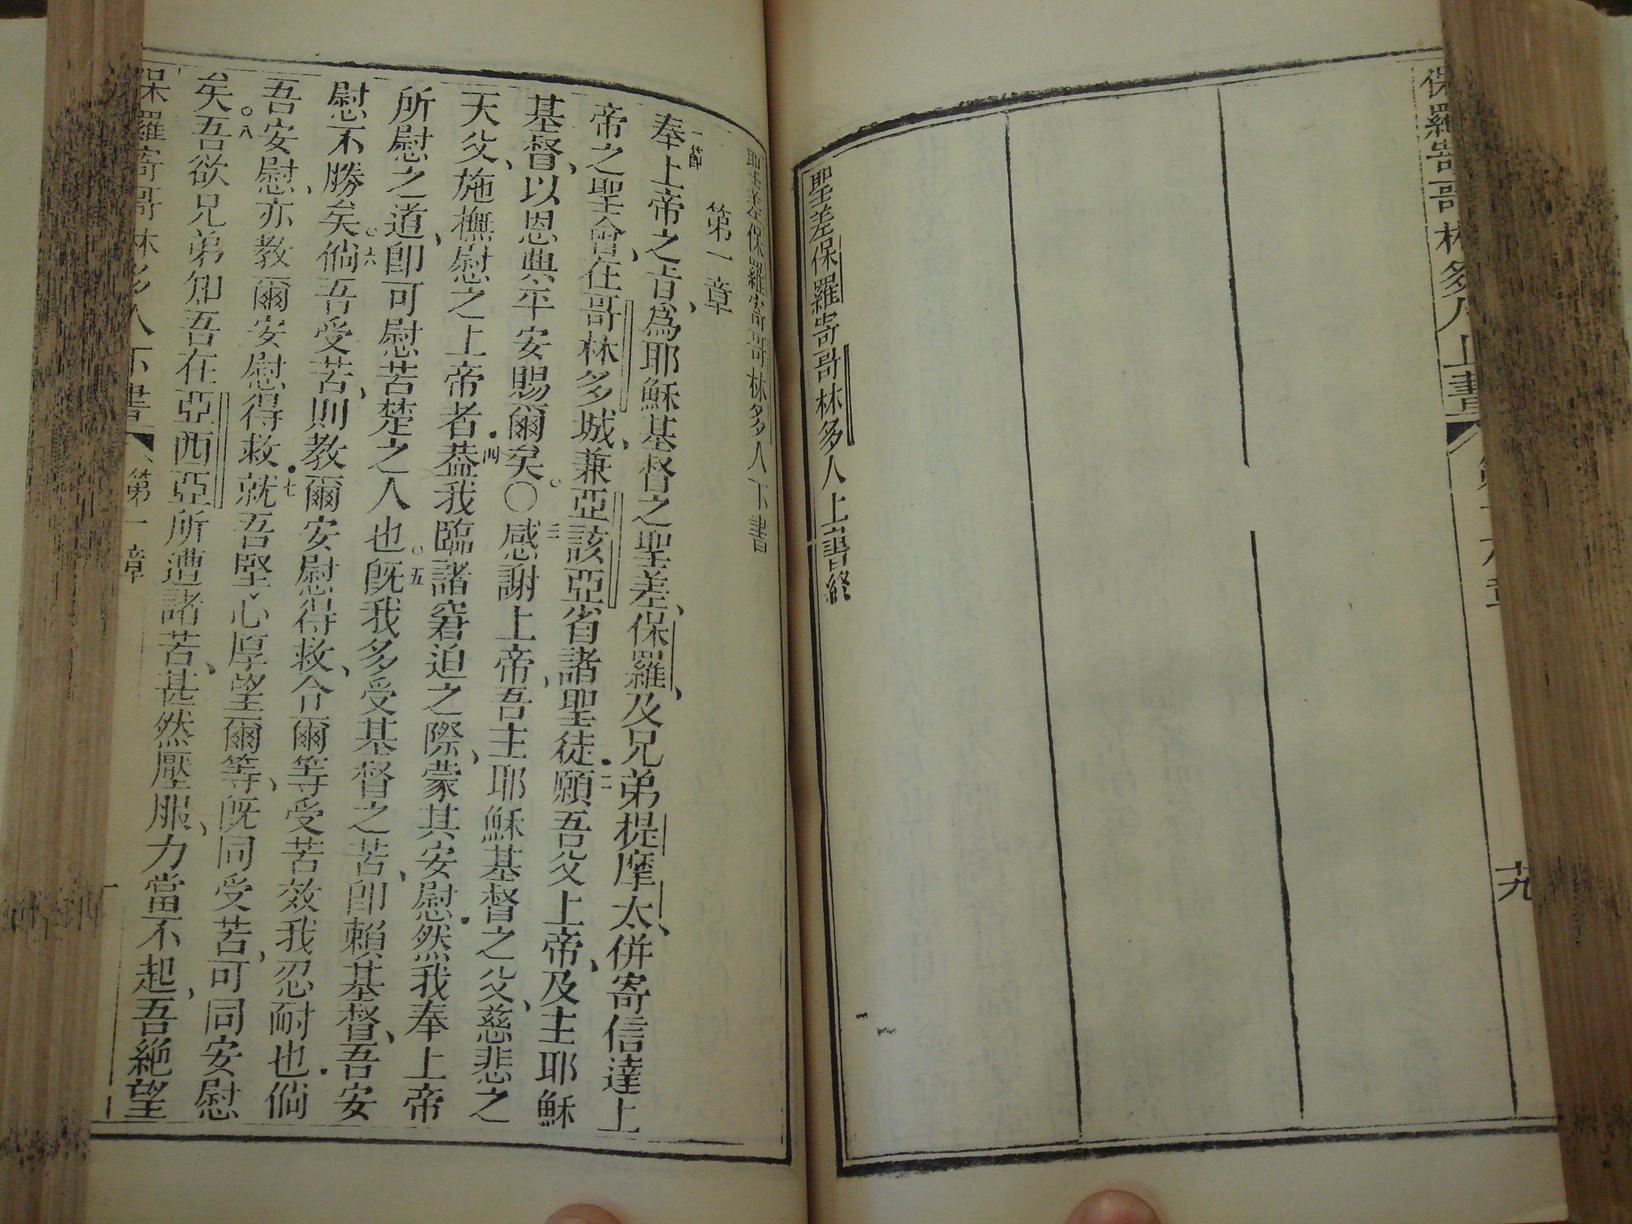 保羅寄哥林多人上書
十九
聖差保羅寄哥林多人上書終
聖差保羅寄哥林多人下書
第一章
一節奉上帝之旨、爲耶穌基督之聖差、保羅、及兄弟提摩太、併寄信達上
帝之聖會、在哥林多城、兼亞該亞省諸聖徒、二願吾父上帝、及主耶穌
基督、以恩典平安賜爾矣。〇三感謝上帝、吾主耶穌基督之父、慈悲之
天父、施撫慰之上帝者、四葢我臨諸窘迫之際、蒙其安慰、然我奉上帝
所慰之道、卽可慰苦楚之人也。五旣我多受基督之苦、卽賴基督、吾安
慰不勝矣。六倘吾受苦、則教爾安慰得救、令爾等受苦效我忍耐也、倘
吾安慰、亦教爾安慰得救、七就吾堅心厚望爾等、旣同受苦、可同安慰
矣。八吾欲兄弟知吾在亞西亞所遭諸苦、甚然壓服、力當不起、吾絶望
保羅寄哥林多人下書
第一章